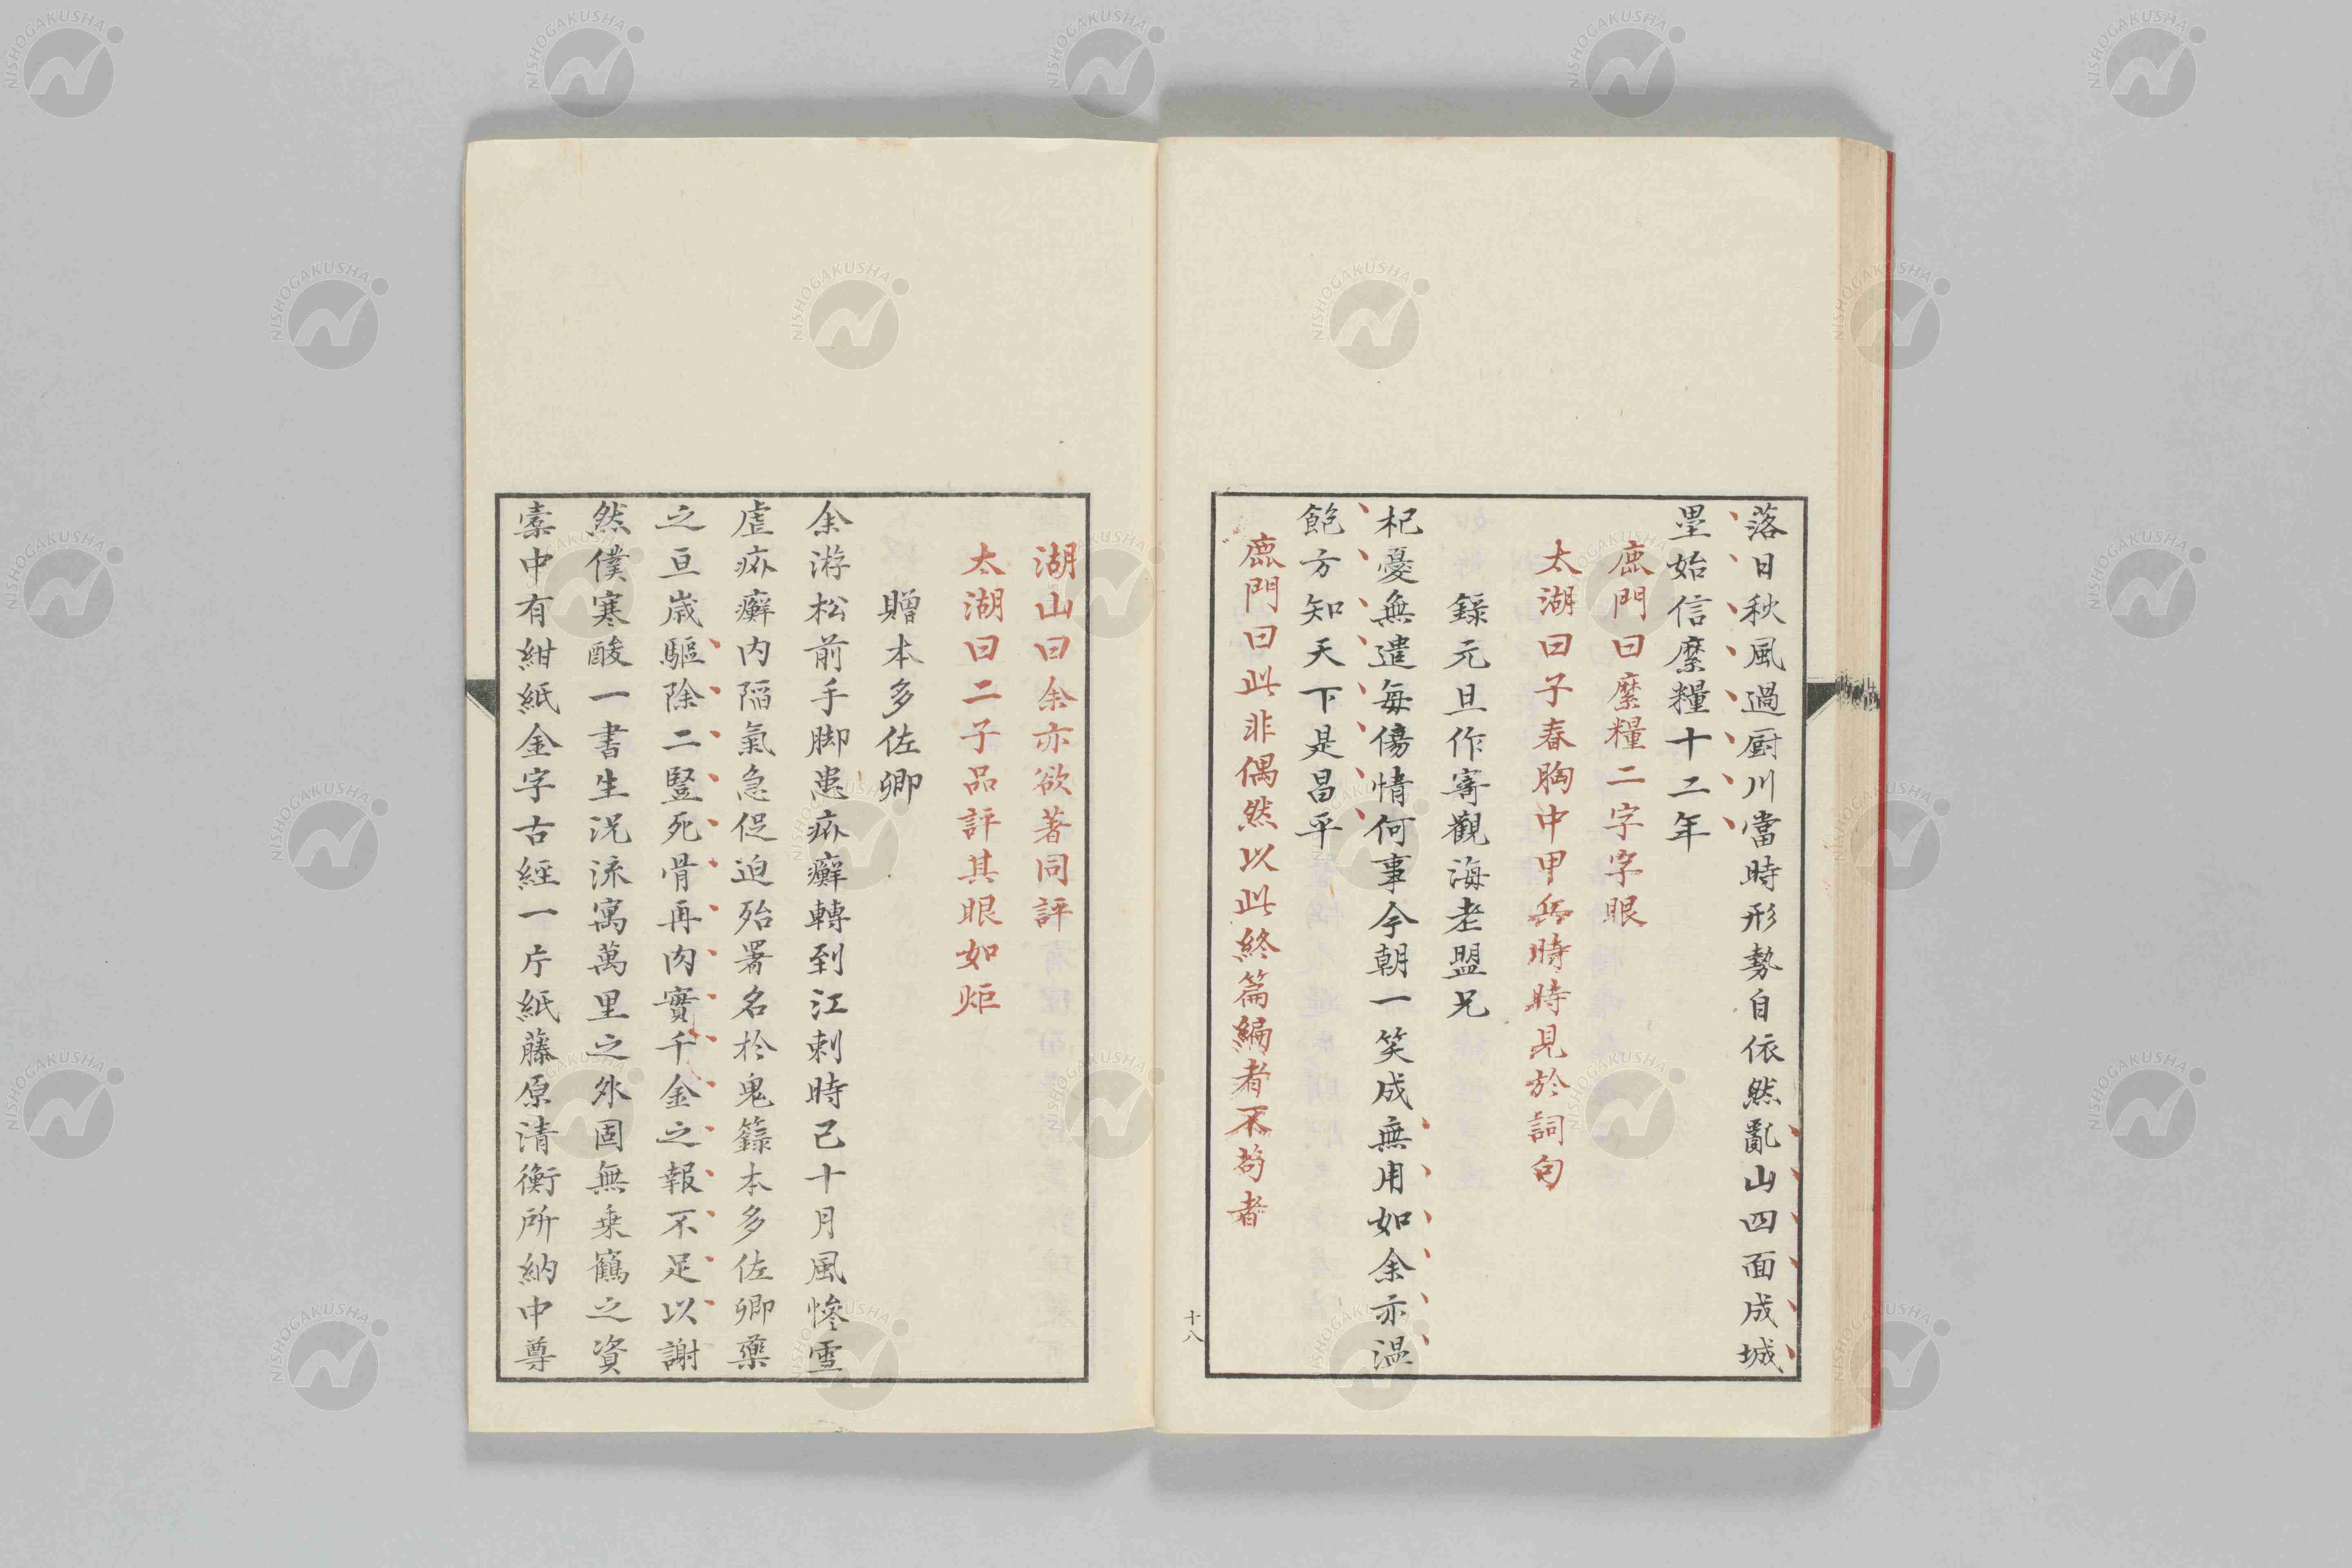 落日秋風過厨川當時形勢自依然亂山四面成城
壘始信縻糧十二年
鹿門曰縻糧二字字眼
太湖曰子春胸中甲兵時時見於詞句
錄元旦作寄觀海老盟兄
杞憂無遣每傷情何事今朝一笑成無用如余亦温
飽方知天下是昌平
鹿門曰此非偶然以此終篇編者不苟者
十八
湖山曰余亦欲著同評
太湖曰二子品評其眼如炬
贈本多佐卿
余游松前手脚患疥癬轉到江刺時已十月風慘雪
虐疥癬内陷氣急促迫殆署名於鬼籙本多佐卿藥
之亘歳驅除二豎死骨再肉實千金之報不足以謝
然僕寒酸一書生況流寓萬里之外固無乗鶴之資
槖中有紺紙金字古經一片紙藤原清衡所納中尊
NISHOGAKUSHA